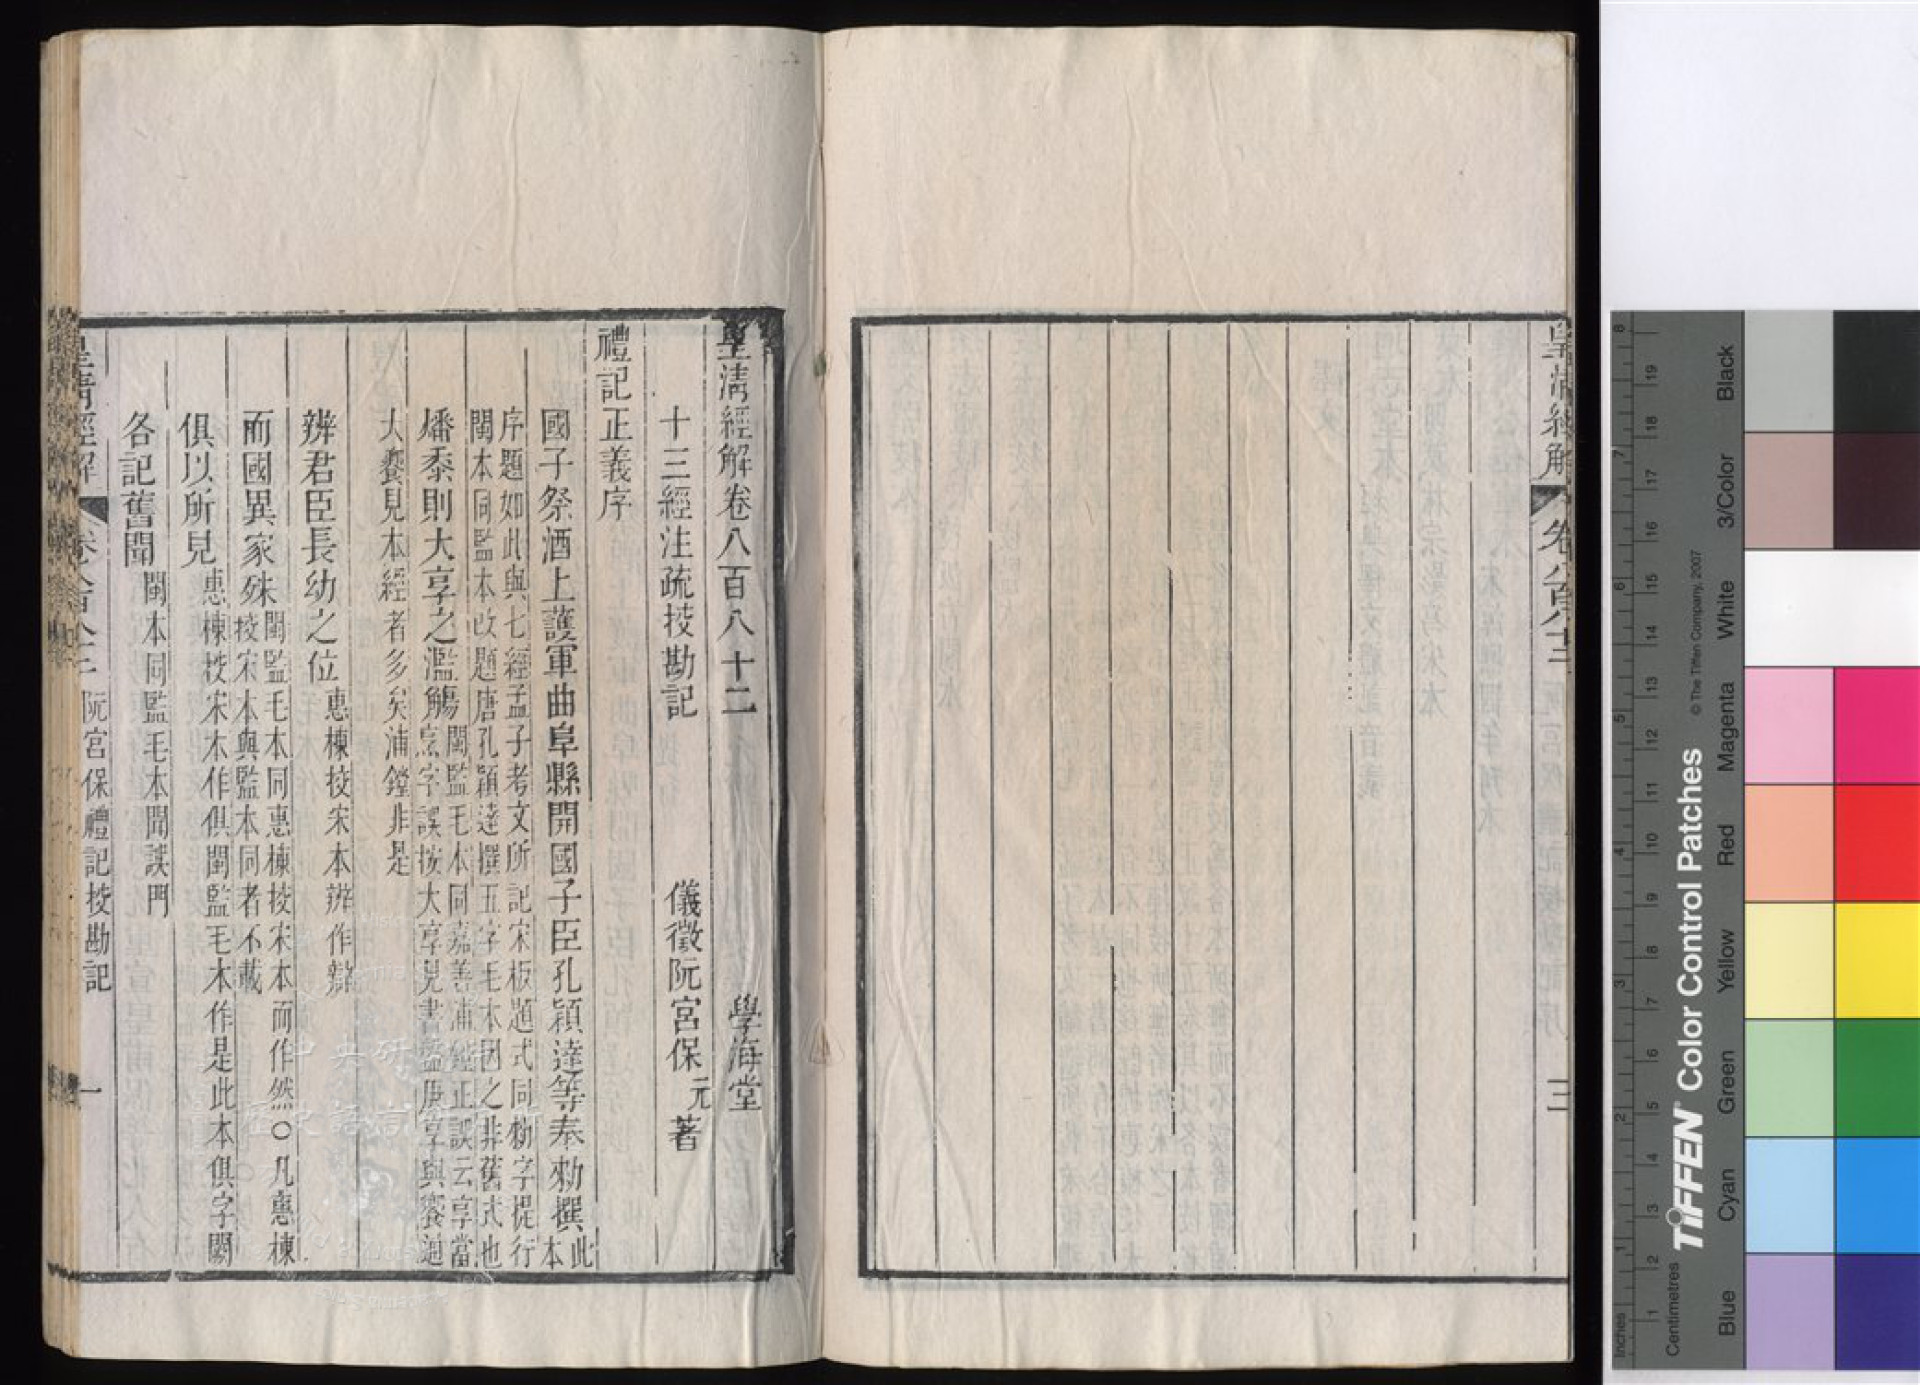 皇清經解卷八百八十二
學海堂
十三經注疏挍勘記
儀徵阮宮保元著
禮記正義序
國子祭酒上護軍曲阜縣開國子臣孔穎達等奉勑撰此本
序題如此與七經孟子考文所記宋板題式同勑字提行
閩本同監本改題唐孔穎達撰五字毛本因之非舊式也
燔黍則大享之濫觴閩監毛本同嘉善浦鏜正誤云享當
烹字誤按大享見書盤庚享與饗通
大饗見本經者多矣浦鏜非是
辨君臣長幼之位惠棟挍宋本辨作辯
而國異家殊閩監毛本同惠棟挍宋本而作然○凡惠棟
挍宋本與監本同者不載
俱以所見惠棟挍宋本作俱閩監毛本作是此本俱字闕
各記舊聞閩本同監毛本聞誤門
皇清經解
卷八百八十二
阮宮保禮記挍勘記
一
皇清經解
卷八百八十二
二
Inches
Centimetres
TIFFEN® Color Control Patches
© The Tiffen Company, 2007
Blue
Cyan
Green
Yellow
Red
Magenta
White
3/Color
Black